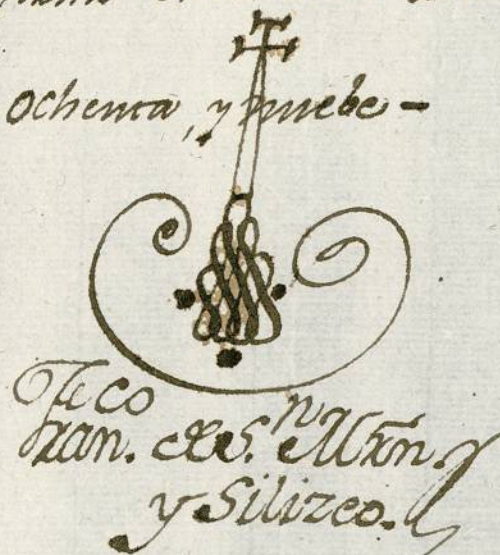 ochenta, y nuebe-
Fran.co de S.n Mrn.
y Silizeo.